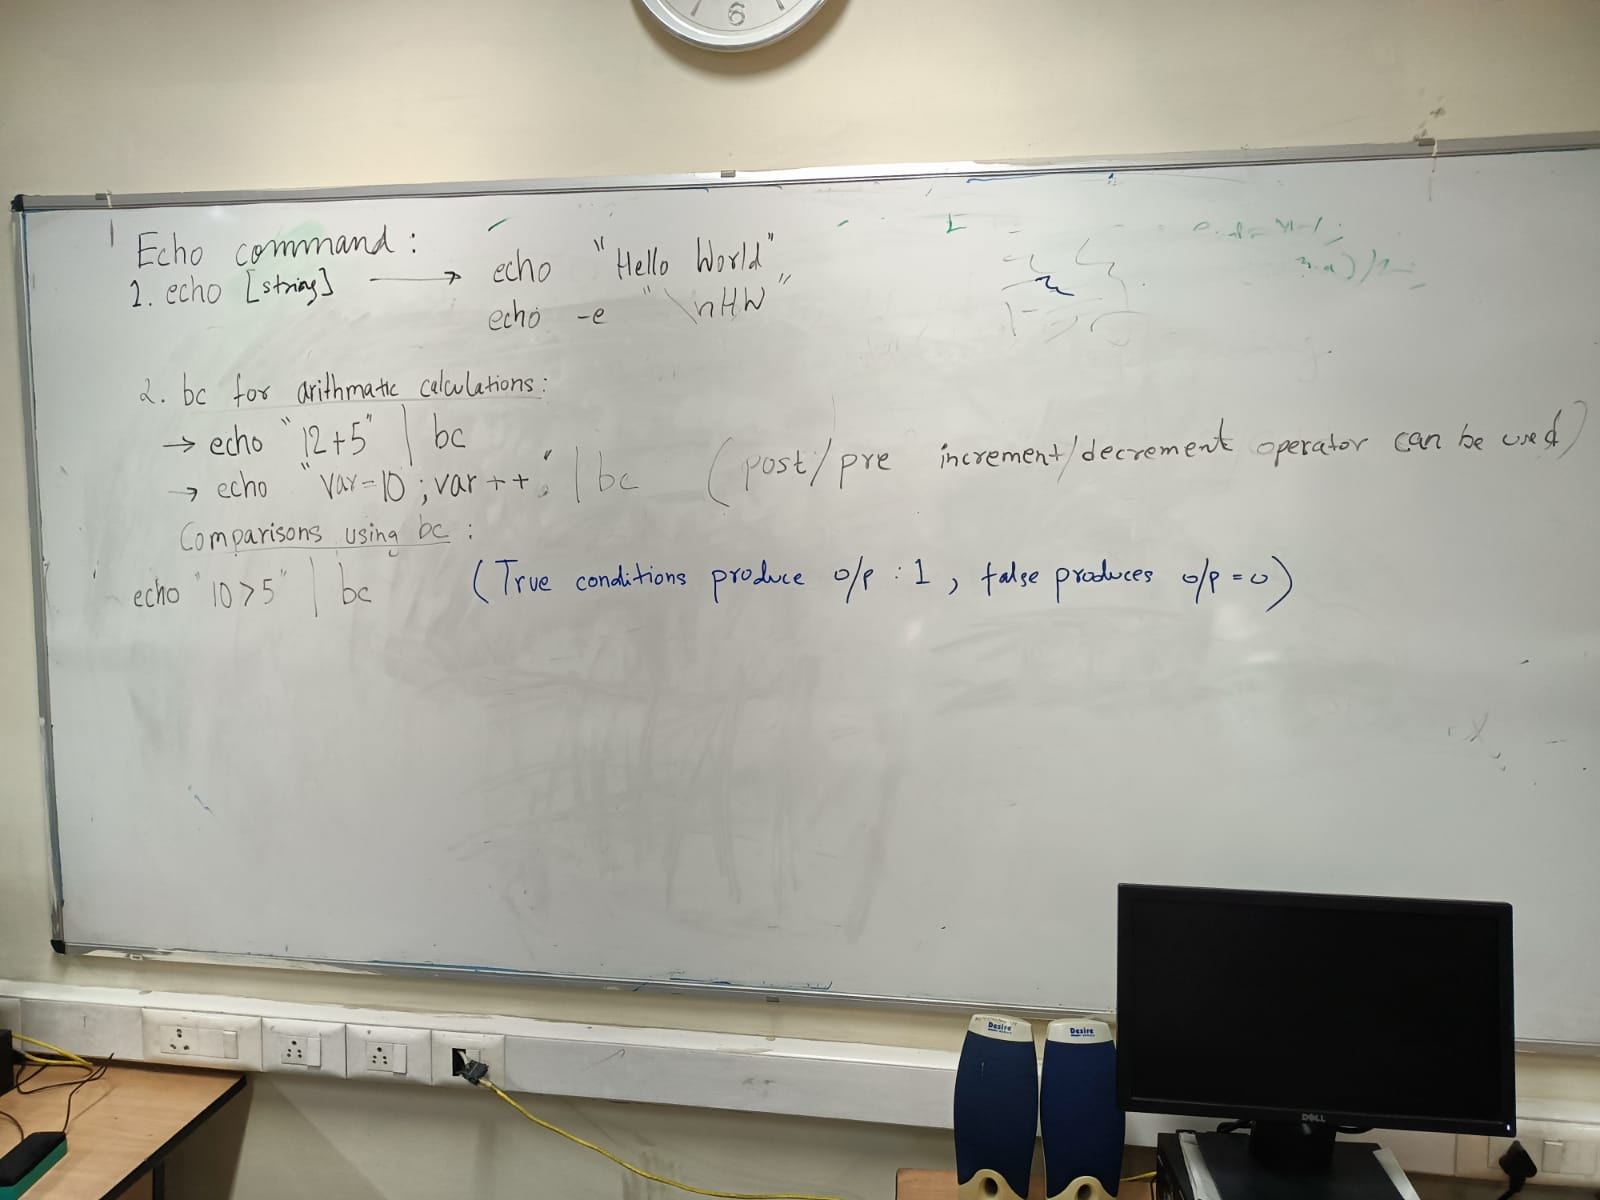 6
Echo command :
1. echo [string] → echo "Hello World"
echo -e "\nHW"
2. bc for arithmatic calculations:
→ echo "12+5" | bc
→ echo "var=10 ; var++" | bc (post/pre increment/decrement operator can be used)
Comparisons using bc :
echo "10>5" | bc (True conditions produce o/p : 1 , false produces o/p = 0)
Desire
Desire
DELL